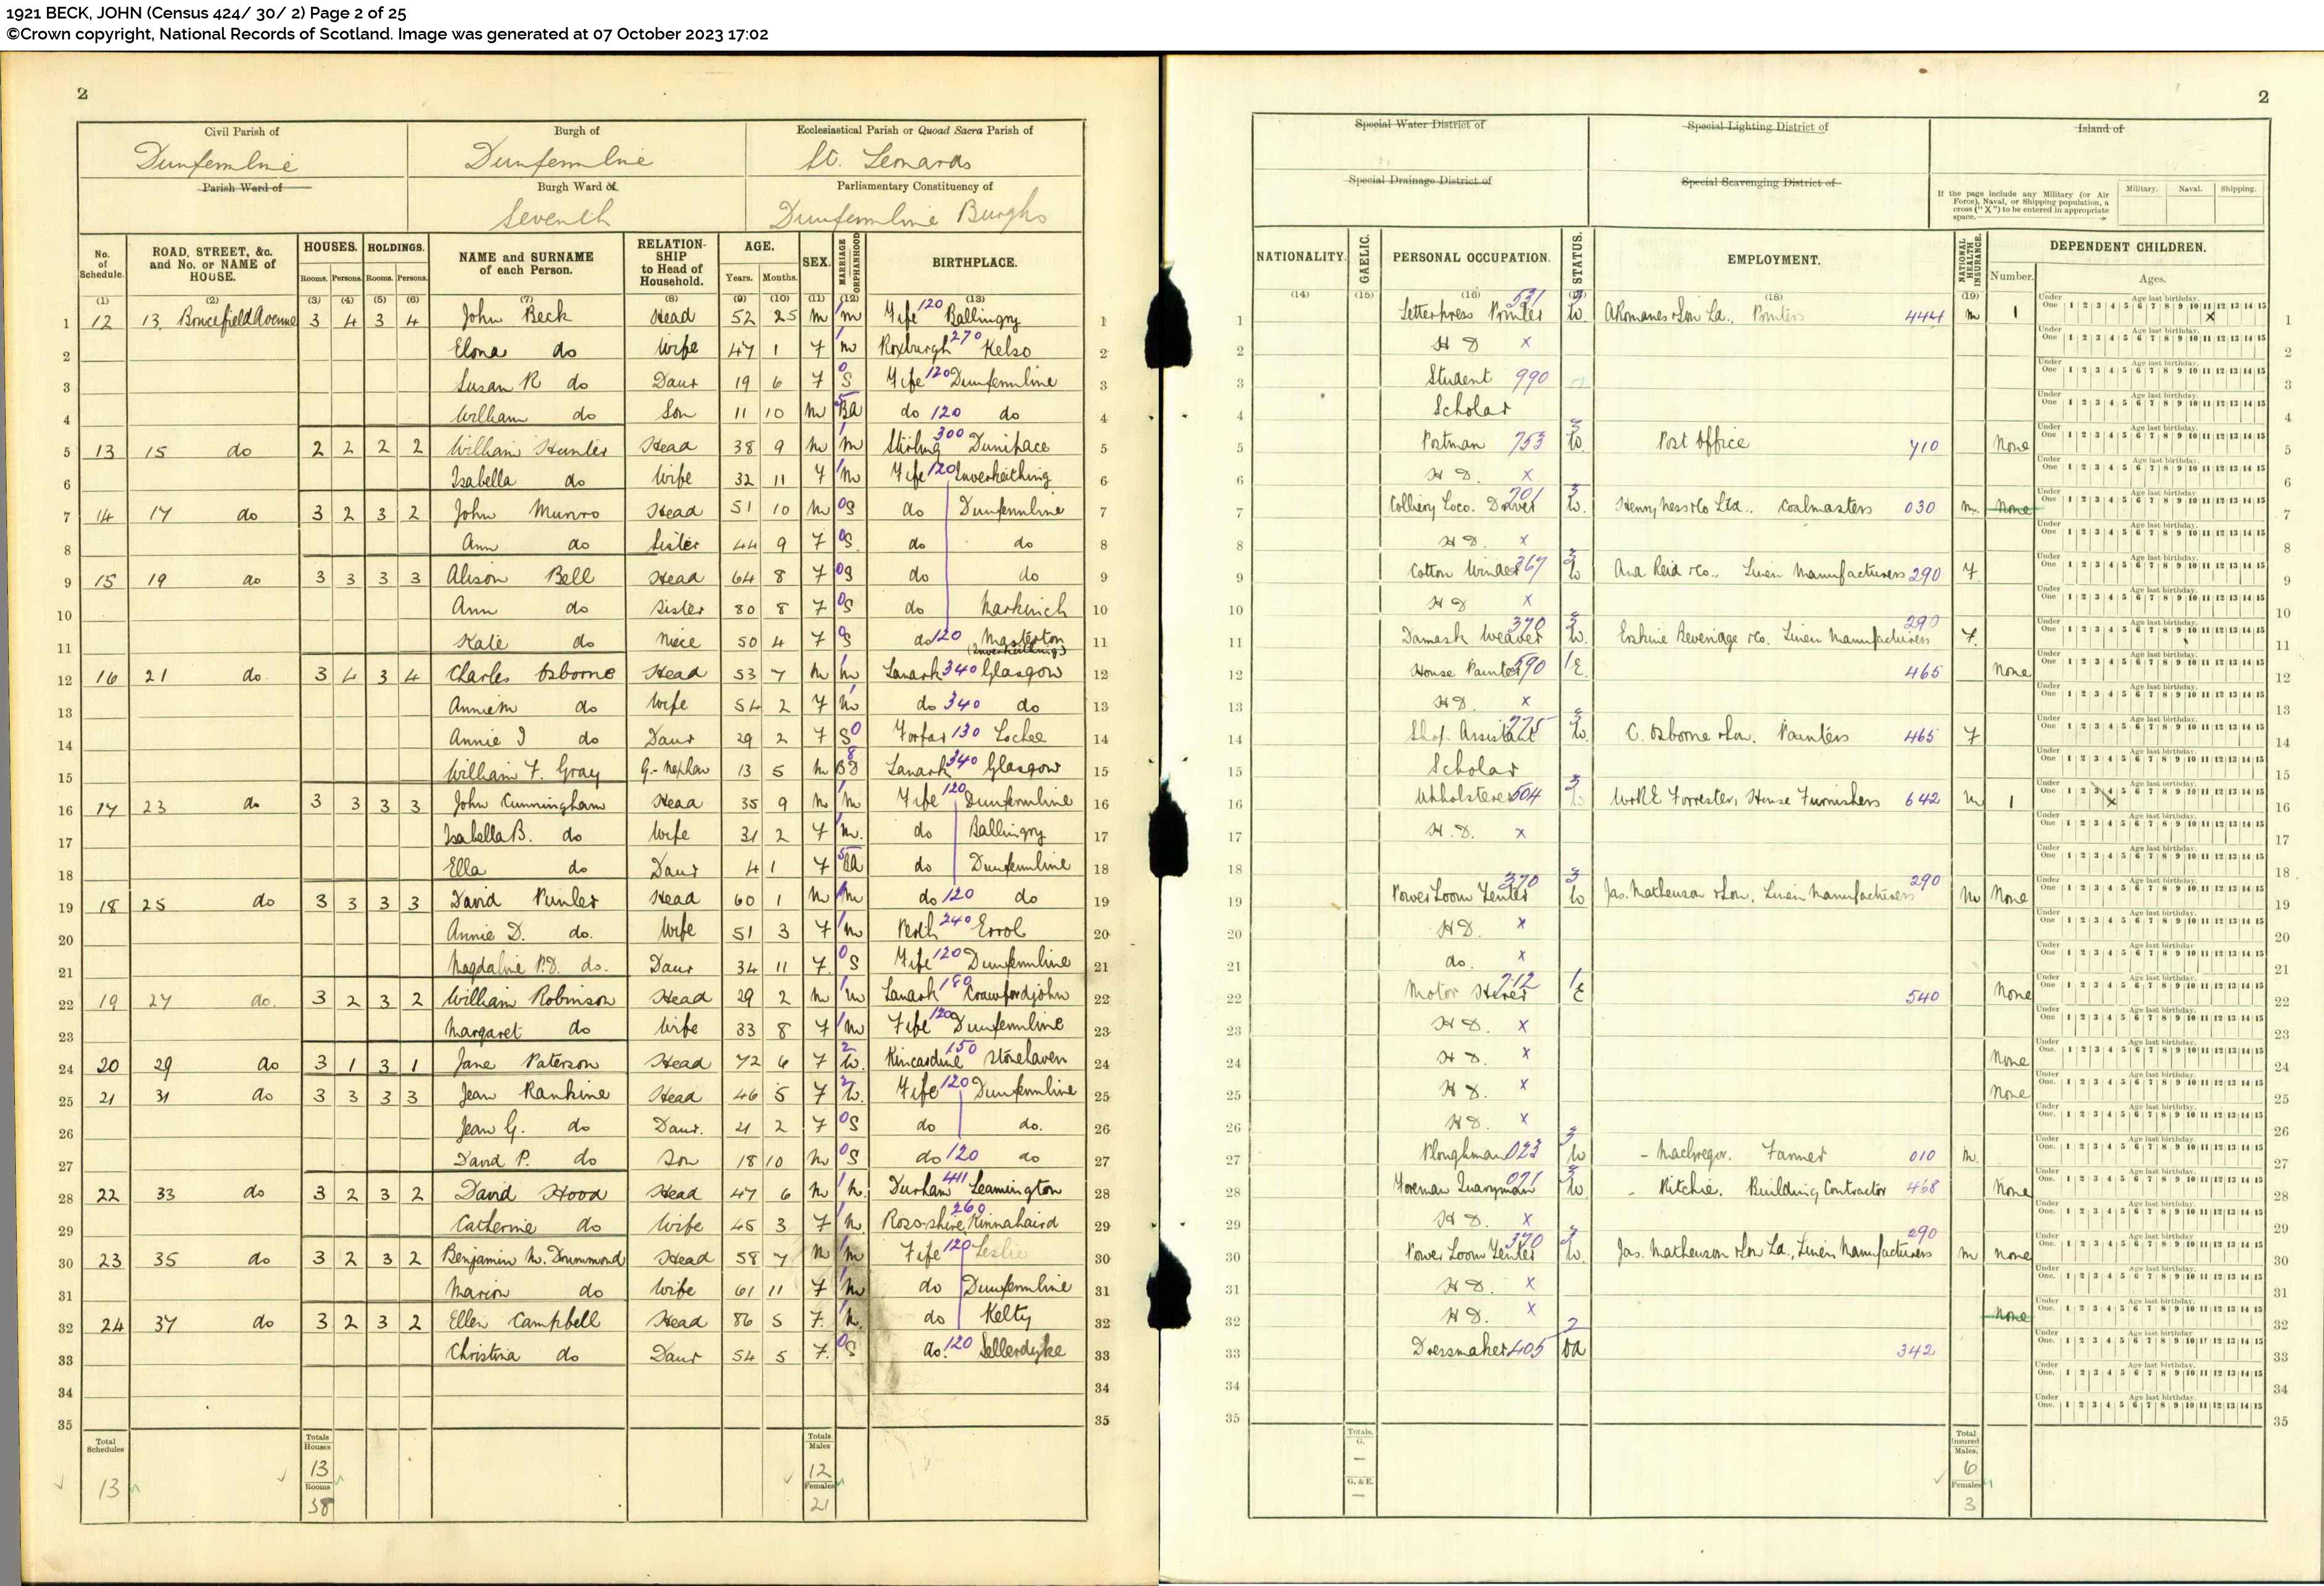 1921 BECK, JOHN (Census 424/ 30/ 2) Page 2 of 25
©Crown copyright, National Records of Scotland. Image was generated at 07 October 2023 17:02
2
Civil Parish of Burgh of Ecclesiastical Parish or Quoad Sacra Parish of
Dunfermline Dunfermline St. Leonards
Parish Ward of Burgh Ward of Parliamentary Constituency of
Seventh Dunfermline Burghs
No. of Schedule. ROAD, STREET, &c. and No. or NAME of HOUSE. HOUSES. HOLDINGS. NAME and SURNAME of each Person. RELATIONSHIP to Head of Household. AGE. SEX. MARRIAGE ORPHANHOOD BIRTHPLACE.
Rooms. Persons. Rooms. Persons. Years. Months.
(1) (2) (3) (4) (5) (6) (7) (8) (9) (10) (11) (12) (13)
1 12 13 Boncefield Avenue 3 4 3 4 John Beck Head 52 25 M 1 M Fife 120 Ballingry 1
2 Elona do Wife 47 1 F 1 M Roxburgh 270 Kelso 2
3 Susan R do Daur 19 6 F 0 S Fife 120 Dunfermline 3
4 William do Son 11 10 M 5 BA do 120 do 4
5 13 15 do 2 2 2 2 William Hunter Head 38 9 M 1 M Stirling 300 Dunipace 5
6 Isabella do Wife 32 11 F 1 M Fife 120 Inverkeithing 6
7 14 17 do 3 2 3 2 John Munro Head 51 10 M 0 S do Dunfermline 7
8 Ann do Sister 44 9 F 0 S. do do 8
9 15 19 do 3 3 3 3 Alison Bell Head 64 8 F 0 S do do 9
10 Ann do Sister 80 8 F 0 S do Markinch 10
11 Kate do Niece 50 4 F 0 S do 120 Masterton (Inverkeithing) 11
12 16 21 do 3 4 3 4 Charles Osborne Head 53 7 M 1 M Lanark 340 Glasgow 12
13 Annie M do Wife 54 2 F 1 M do 340 do 13
14 Annie I do Daur 29 2 F S 0 Forfar 130 Lochee 14
15 William F. Gray G.-Nephew 13 5 M 8 BD Lanark 340 Glasgow 15
16 17 23 do 3 3 3 3 John Cunningham Head 35 9 M 1 M Fife 120 Dunfermline 16
17 Isabella B. do Wife 31 2 F 1 M. do Ballingry 17
18 Ella do Daur 4 1 F 5 BA do Dunfermline 18
19 18 25 do 3 3 3 3 David Punler Head 60 1 M 1 M do 120 do 19
20 Annie D. do. Wife 51 3 F 1 M Perth 240 Errol 20
21 Magdaline P.D. do. Daur 34 11 F 0 S Fife 120 Dunfermline 21
22 19 27 do. 3 2 3 2 William Robinson Head 29 2 M 1 M Lanark 180 Crawfordjohn 22
23 Margaret do Wife 33 8 F 1 M Fife 120 Dunfermline 23
24 20 29 do 3 1 3 1 Jane Paterson Head 72 6 F 2 W. Kincardine 150 Stonehaven 24
25 21 31 do 3 3 3 3 Jean Rankine Head 46 5 F 2 W. Fife 120 Dunfermline 25
26 Jean G. do Daur. 21 2 F 0 S do do. 26
27 David P. do Son 18 10 M 0 S do 120 do 27
28 22 33 do 3 2 3 2 David Hood Head 47 6 M 1 M. Durham 411 Leamington 28
29 Catherine do Wife 45 3 F 1 M. Ross-shire 260 Kinnahaird 29
30 23 35 do 3 2 3 2 Benjamin M. Drummond Head 58 7 M 1 M Fife 120 Leslie 30
31 Marion do Wife 61 11 F 1 M do Dunfermline 31
32 24 37 do 3 2 3 2 Ellen Campbell Head 86 5 F. do Kelty 32
33 Christina do Daur 54 5 F. 0 S do. 120 Sellerdyke 33
34 34
35 35
Total Schedules Totals Houses Totals Males
13 13 12
Rooms Females
38 21
2
Special Water District of Special Lighting District of Island of
Special Drainage District of Special Scavenging District of
If the page include any Military (or Air Force), Naval, or Shipping population, a cross ("X") to be entered in appropriate space. Military. Naval. Shipping.
NATIONALITY. GAELIC. PERSONAL OCCUPATION. STATUS. EMPLOYMENT. NATIONAL HEALTH INSURANCE. DEPENDENT CHILDREN.
Number. Ages.
(14) (15) (16) (18) (19)
Under One 1 2 3 4 5 6 7 8 9 10 11 12 13 14 15 Age last birthday.
1 Letterpress Printer 531 3 W. A Romanes & Son Ld., Printers 444 M 1 X 1
2 H D X 2
3 Student 990 3
4 Scholar 4
5 Postman 753 3 W. Post Office 710 None 5
6 H D. X 6
7 Colliery Loco. Driver 701 3 W. Henry Ness & Co Ltd.. Coalmasters 030 M. None 7
8 H D. X 8
9 Cotton Winder 367 3 W And Reid & Co., Linen Manufacturers 290 F 9
10 H D X 10
11 Damask Weaver 370 3 W. Erskine Beveridge & Co. Linen Manufacturers 290 F. 11
12 House Painter 590 1 E. 465 None 12
13 H D. X 13
14 Shop Assistant 775 3 W. C. Osborne & Son. Painters 465 F 14
15 Scholar 15
16 Upholsterer 504 3 W. W & R E Forrester, House Furnishers 642 M 1 X 16
17 H. D. X 17
18 18
19 Power Loom Tenter 370 3 W Jas. Mathewson & Son. Linen Manufacturers 290 M None 19
20 H D. X 20
21 do. X 21
22 Motor Hirer 712 1 E 540 None 22
23 H D. X 23
24 H D. X None 24
25 H D. X None 25
26 H D. X 26
27 Ploughman 023 3 W - MacGregor. Farmer 010 M. 27
28 Foreman Quarryman 071 3 W. - Ritchie. Building Contractor 468 None 28
29 H D. X 29
30 Power Loom Tenter 370 3 W. Jas. Mathewson & Son Ld., Linen Manufacturers 290 M None 30
31 H D. X 31
32 H D. X None 32
33 Dressmaker 405 2 OA 342 33
34 34
35 35
Totals. G. Total Insured Males.
— 6
G. & E. Females
— 3